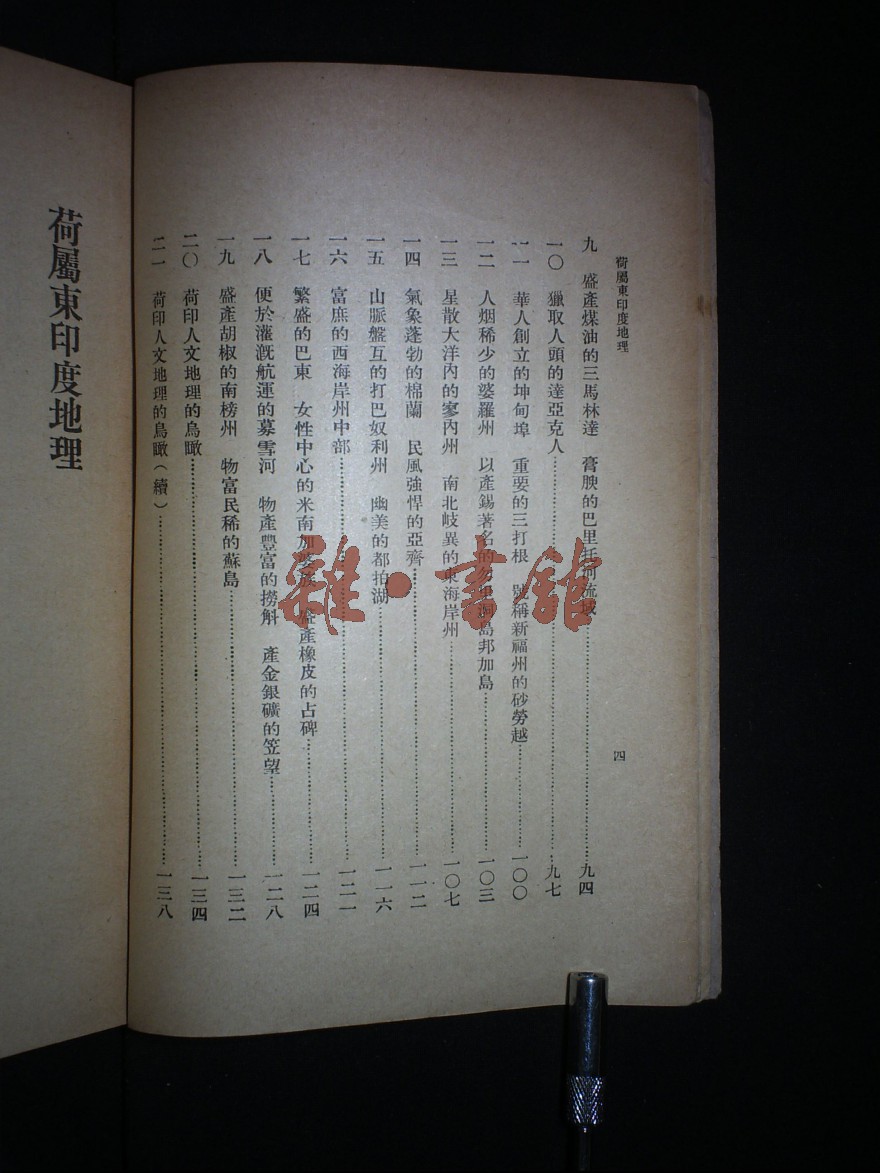 荷屬東印度地理
四
九 盛產煤油的三馬林達 膏腴的巴里托河流域……九四
一〇 獵取人頭的達亞克人……九七
一一 華人創立的坤甸埠 重要的三打根 號稱新福州的砂勞越……一〇〇
一二 人烟稀少的婆羅州 以產錫著名的勿里洞島邦加島……一〇三
一三 星散大洋內的寥內州 南北岐異的東海岸州……一〇七
一四 氣象蓬勃的棉蘭 民風強悍的亞齊……一一二
一五 山脈盤互的打巴奴利州 幽美的都拍湖……一一六
一六 富庶的西海岸州中部……一二一
一七 繁盛的巴東 女性中心的米南加婆族 盛產橡皮的占碑……一二四
一八 便於灌溉航運的募雪河 物產豐富的撈斛 產金銀礦的笠望……一二八
一九 盛產胡椒的南榜州 物富民稀的蘇島……一三二
二〇 荷印人文地理的鳥瞰……一三四
二一 荷印人文地理的鳥瞰(續)……一三八
荷屬東印度地理
雜·書館